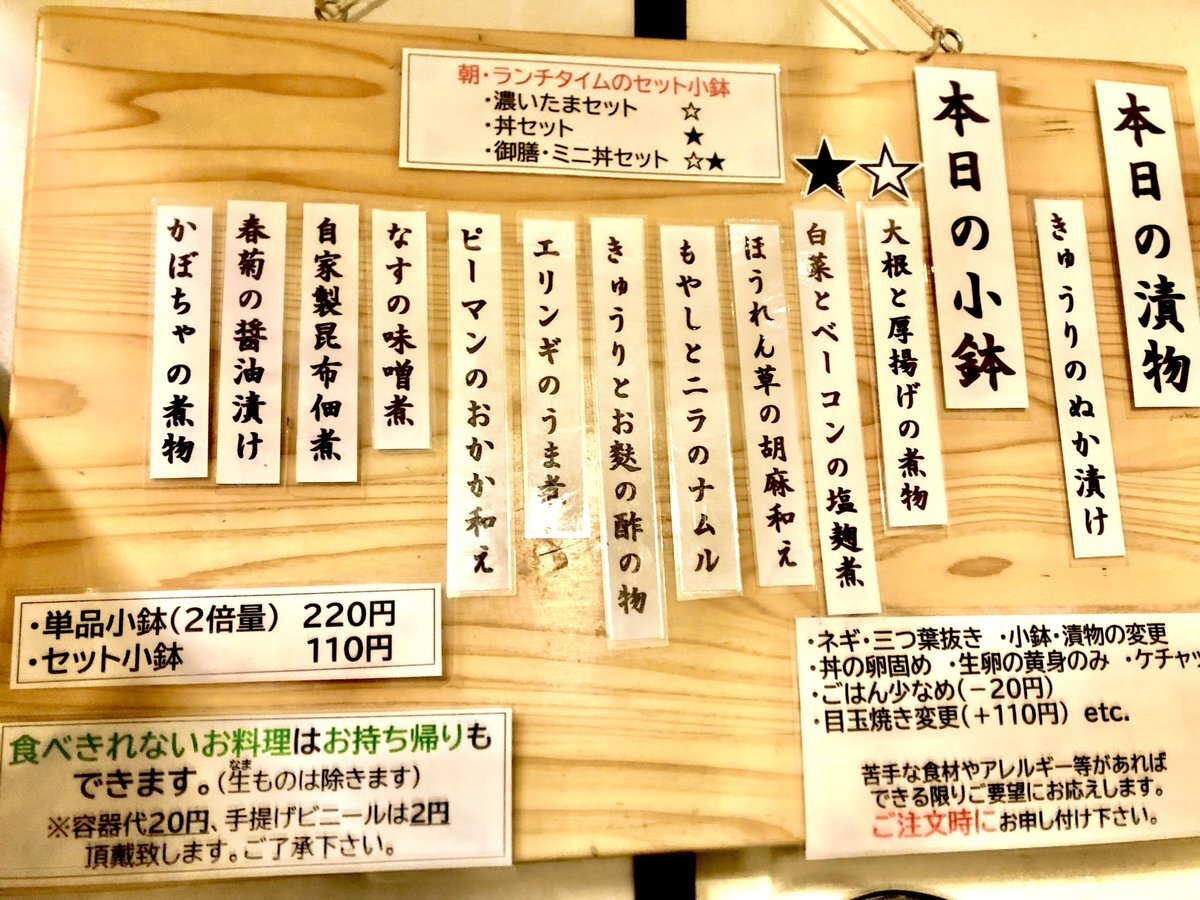 本日の漬物
きゅうりのぬか漬け
本日の小鉢
☆
大根と厚揚げの煮物
★
白菜とベーコンの塩麹煮
ほうれん草の胡麻和え
もやしとニラのナムル
きゅうりとお麸の酢の物
エリンギのうま煮
ピーマンのおかか和え
なすの味噌煮
自家製昆布佃煮
春菊の醤油漬け
かぼちゃの煮物
朝・ランチタイムのセット小鉢
・濃いたまセット ☆
・丼セット ★
・御膳・ミニ丼セット ☆★
・単品小鉢(2倍量) 220円
・セット小鉢 110円
食べきれないお料理はお持ち帰りも
できます。(生ものは除きます)
なま
※容器代20円、手提げビニールは2円
頂戴致します。ご了承下さい。
・ネギ・三つ葉抜き ・小鉢・漬物の変更
・丼の卵固め ・生卵の黄身のみ ・ケチャッ
・ごはん少なめ(−20円)
・目玉焼き変更(+110円) etc.
苦手な食材やアレルギー等があれば
できる限りご要望にお応えします。
ご注文時にお申し付け下さい。